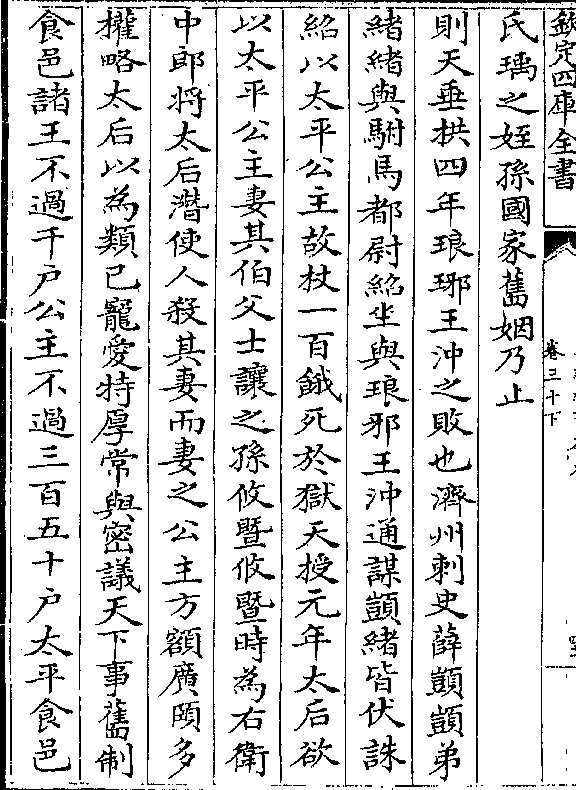 欽定四庫全書
卷三十下
氏瑀之姪孫國家舊姻乃止
則天垂拱四年琅琊王沖之敗也濟州刺史薛顗顗弟
緒緒與駙馬都尉紹坐與琅邪王沖通謀顗緒皆伏誅
紹以太平公主故杖一百餓死於獄天授元年太后欲
以太平公主妻其伯父士讓之孫攸暨攸暨時為右衛
中郎將太后潛使人殺其妻而妻之公主方額廣頤多
權略太后以為類已寵愛特厚常與密議天下事舊制
食邑諸王不過千户公主不過三百五十户太平食邑